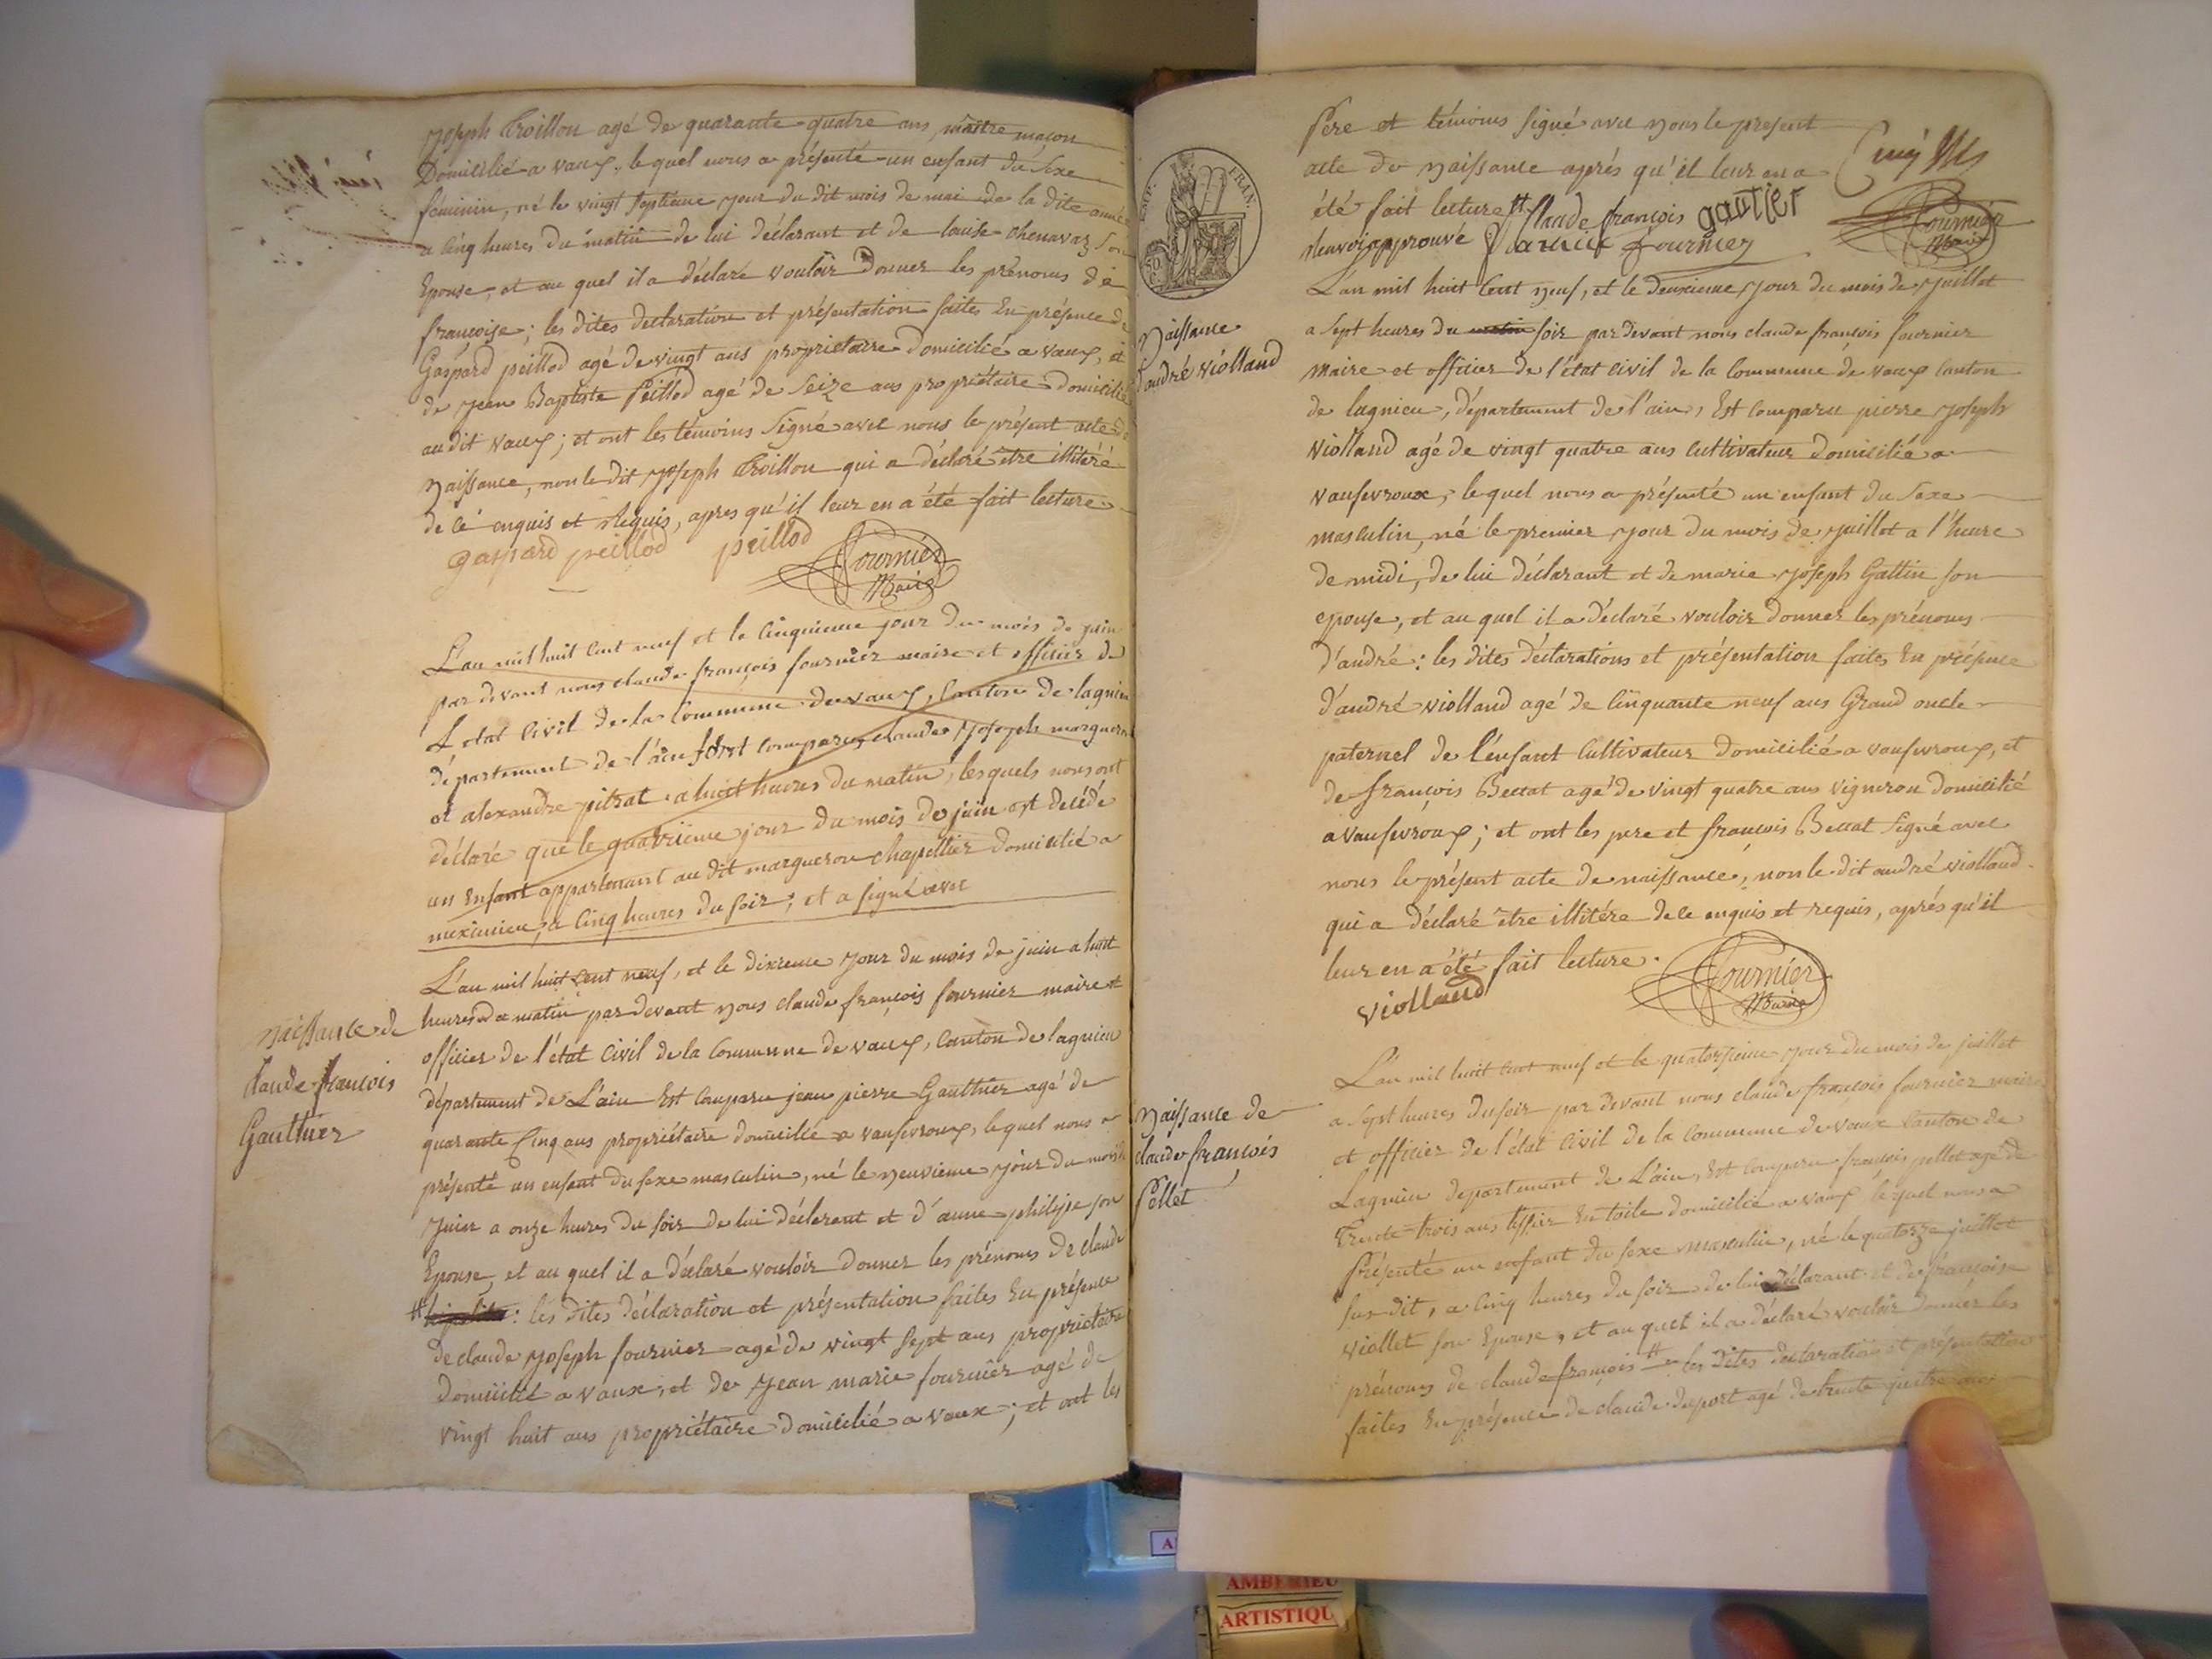 Joseph Croillon agé de quarante quatre ans maitre maçon
Domicilié a vaux, lequel nous a présenté un enfant du sexe
féminin, né le vingt septième jour du dit mois de mai de la dite année
a cinq heures du matin de lui déclarant et de louise chenavaz son
Epouse, et au quel il a déclaré vouloir donner les prénoms de
françoise; les dites declaration et présentation faites En présence de
Gaspard peillod agé de vingt ans propriétaire domicilié a vaux, et
de jean Baptiste Peillod agé de seize ans propriétaire domicilié
au dit vaux; et ont les témoins signé avec nous le présent acte de
naissance, non le dit joseph Croillon qui a déclaré être illitéré
de ce enquis et requis, apres qu'il leur en a été fait lecture
gaspard peillod peillod Fournier
Maire
L'an mil huit cent neuf et le cinquieme jour du mois de juin
par devant nous claude françois fournier maire et officier de
L'etat civil de la commune de vaux, canton de lagnieu
département de l'ain sont comparus claude joseph margueron
et alexandre pitrat a huit heures du matin, lesquels nous ont
déclaré que le quatrième jour du mois de juin est decédé
un Enfant appartenant au dit margueron chapellier domicilié a
meximieu, a cinq heures du soir, et a signé avec
naissance de
claude françois
Gauthier
L'an mil huit cent neuf, et le dixieme jour du mois de juin a huit
heures du matin par devant nous claude françois fournier maire et
officier de l'état civil de la commune de vaux, canton de lagnieu
département de L'ain Est comparu jean pierre Gauthier agé de
quarante cinq ans propriétaire domicilié a vaufevroux, lequel nous a
présenté un enfant du sexe masculin, né le neuvieme jour du mois de
juin a onze heures du soir de lui déclarant et d'anne philippe son
Epouse, et au quel il a déclaré vouloir donner les prénoms de claude
# : les dites déclaration et présentation faites En présence
de claude joseph fournier agé de vingt sept ans propriétaire
domicilié a vaux, et de jean marie fournier agé de
vingt huit ans propriétaire domicilié a vaux; et ont les
Pere et témoins signé avec nous le present
acte de naissance après qu'il leur en a
été fait lecture # claude françois gautier
renvoi approuvé fournier Fournier
Maire
EMP. FRAN.
Naissance
d'andré violland
L'an mil huit cent neuf, et le deuxieme jour du mois de juillet
a sept heures du matin soir par devant nous claude françois fournier
maire et officier de l'état civil de la commune de vaux canton
de lagnieu, département de l'ain, Est comparu pierre joseph
violland agé de vingt quatre ans cultivateur domicilié a
vaufevroux, lequel nous a présenté un enfant du sexe
masculin, né le premier jour du mois de juillet a l'heure
de midi, de lui déclarant et de marie joseph Gattin son
epouse, et au quel il a déclaré vouloir donner les prénoms
d'andré: les dites déclarations et présentation faites En présence
d'andré violland agé de cinquante neuf ans Grand oncle
paternel de l'enfant cultivateur domicilié a vaufevroux, et
de françois Bettat agé de vingt quatre ans vigneron domicilié
a vaufevroux; et ont les pere et françois Bettat signé avec
nous le présent acte de naissance, non le dit andré violland
qui a déclaré être illitére de ce enquis et requis, après qu'il
leur en a été fait lecture.
violland Fournier
Maire
Naissance de
claude françois
Pellet
L'an mil huit cent neuf et le quatorzieme jour du mois de juillet
a sept heures du soir par devant nous claude françois fournier maire
et officier de l'état civil de la commune de vaux canton de
Lagnieu departement de L'ain, Est comparu françois pellet agé de
trente trois ans tissier En toile domicilié a vaux lequel nous a
Présenté un enfant du sexe masculin, né le quatorze juillet
sus dit, a cinq heures du soir de lui déclarant et de françoise
viollet son Epouse, et au quel il a déclaré vouloir donner les
prénoms de claude françois # les dites déclaration et présentation
faites En présence de claude duport agé de trente quatre ans
AMBERIEU
ARTISTIQU